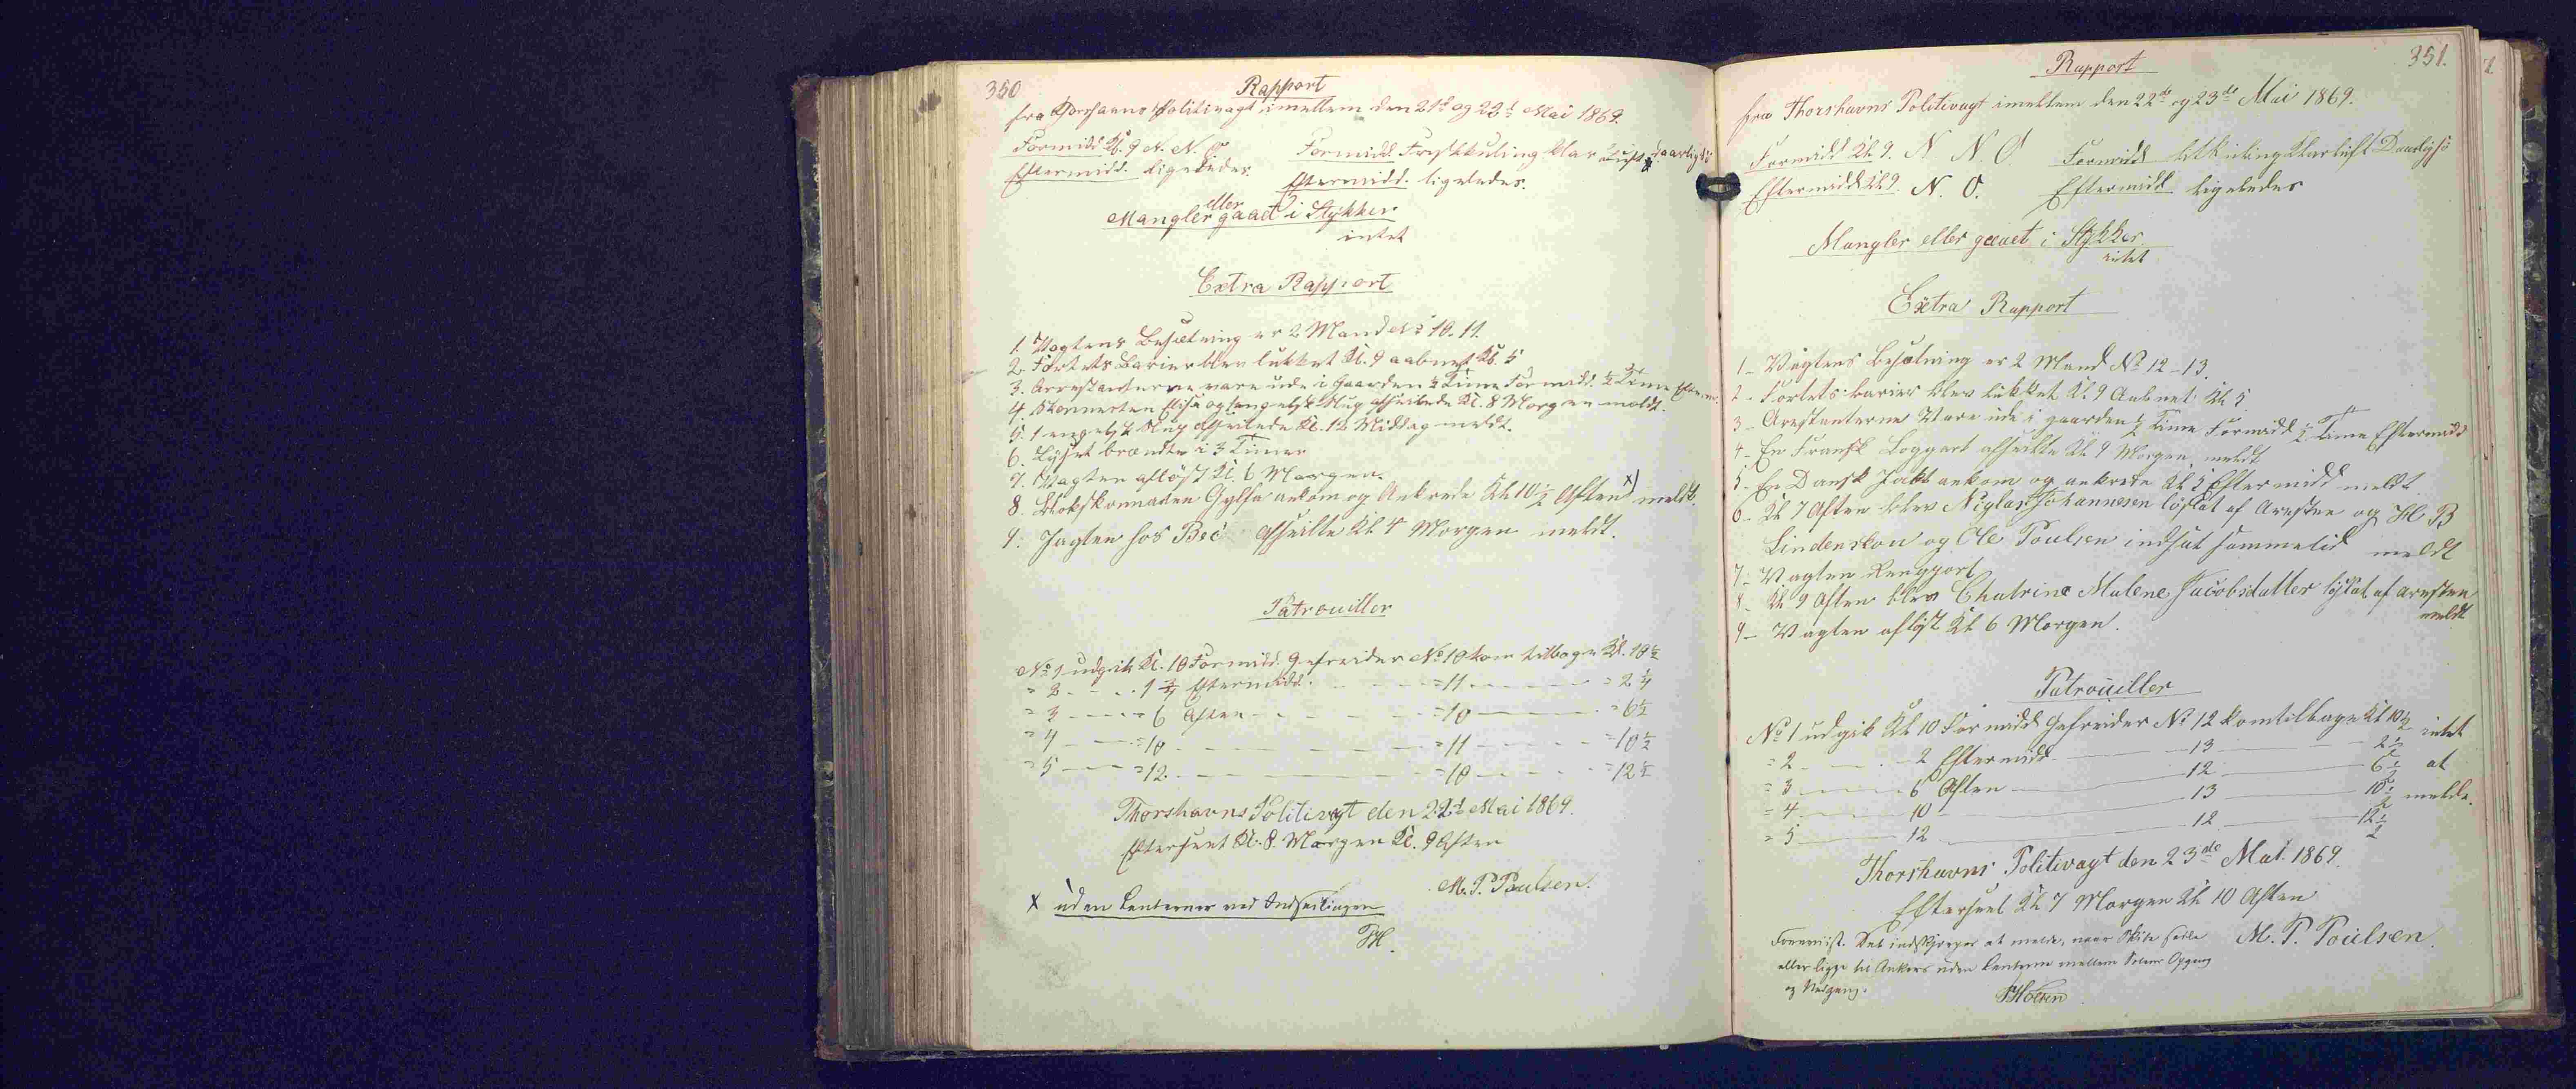 350
Rapport
fra Thorshavns Politivagt imellem den 21d og 22d Mai 1869.
Formidd Kl. 9 N. N. O. Formidd. Friskkuling klar Luft daarligsö
Eftermidd. ligeledes. Eftermidd. ligeledes.
Mangler eller gaaet i Stykker
intet
Extra Rapport
1. Vagtens Besætning er 2 Mand No 10. 11.
2. Fortets Barier blev lukket Kl. 9 aabnet Kl. 5
3. Arrestanterne vare ude i Gaarden ½ Time Formidd. ½ Time Efterm.
4. Skonnerten Elise og 1 engelsk Slup afseilede Kl. 8 Morgen meldt.
5. 1 engelsk Slup afseilede Kl. 12 Middag meldt.
6. Lyset brændte i 3 Timer
7. Vagten aflöst Kl. 6 Morgen.
8. Slukskonnerten Gylfa ankom og Ankrede Kl 10½ Aften x) meldt.
9. Jagten hos Bec afseilte Kl 4 Morgen meldt.
Patrouiller
No 1 udgik Kl. 10 Formidd. Gefreider No 10 kom tilbage Kl. 10½
= 2 - - . 1¾ Eftermidd. - - = 11 - - = 2¼
= 3 - - = 6 Aften - - = 10 - - = 6½
= 4 - - = 10 - - = 11 - - = 10½
= 5 - - = 12. - - = 10 - - = 12½
Thorshavns Politivagt den 22d Mai 1869.
Efterseet Kl. 8. Morgen Kl. 9 Aften
M. P. Poulsen.
x uden Lanterner ved Indseilingen
351.
Rapport
fra Thorshavns Politivagt imellem den 22de og 23de Mai 1869.
Formidd Kl 9. N. N. O. Formidd letkuling Klarluft Daarligsö
Eftermidd Kl 9. N. O. Eftermidd ligeledes
Mangler eller gaaet i Stykker
intet
Extra Rapport
1 - Vagtens Besætning er 2 Mand No 12 - 13.
2 - Fortets barier blev lukket Kl 9 Aabnet Kl 5
3 - Arestanterne Vare ude i gaarden ½ Time Formidd ½ Time Eftermidd
4 - En Fransk Loggart afseilte Kl 9 Morgen meldt
5. En Dansk Jakt ankom og ankrede Kl 5 Eftermidd meldt
6 - Kl 7 Aften blev Niglas Johannesen löslat af Aresten og H B
Lindenskou og Ole Poulsen indsat sammetid meldt
7 - Vagten Rengjort
8 - Kl 9 Aften blev Chatrine Malene Jacobsdatter löslat af aresten
meldt
9 - Vagten aflöst Kl 6 Morgen.
Patrouiller
No 1 udgik Kl 10 Formidd Gefreider No 12 kom tilbage Kl 10½ intet
= 2 - - 2 Eftermidd - 13 - 2½
= 3 - - 6 Aften - 12 - 6½ at
= 4 - - 10 - 13 - 10½ melde.
= 5 - - 12 - 12 - 12½
Thorshavns Politivagt den 23de Mai 1869.
Efterseet Kl 7 Morgen Kl 10 Aften
M. P. Poulsen.
Foreviist. Det indskjærpes at melde, naar Skibe seile
eller ligge til Ankers uden Lanterne mellem Solens Opgang
og Nedgang.